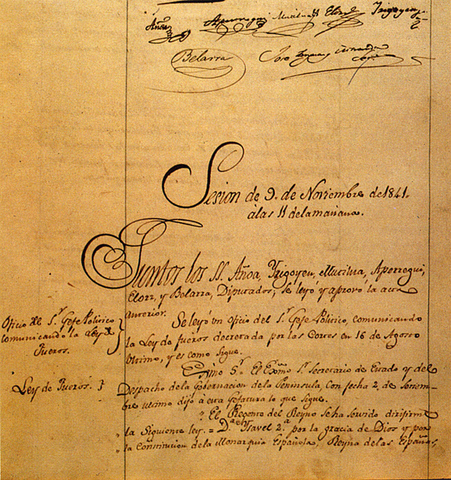 Añoa Aperregui Muzturia Elorz Yrigoyen
Belarra José Yanguas
Sesion de 9. de Noviembre de 1841.
à las 11 de la mañana.
Juntos los SS. Añoa, Yrigoyen, Aperregui,
Elorz, y Belarra, Diputados, se leyó y aprovo la acta
anterior.
Oficio del Sr. Gefe Politico
comunicando la Ley de
Fueros.
Se leyó un Oficio del Sr. Gefe Politico, comunicando
la Ley de fueros decretada por las Cortes en 16 de Agosto
ultimo, y es como sigue.
Ley de Fueros.
Exmo Sr. El Exmo Sr. Secretario de Estado y del
Despacho de la Gobernacion de la Peninsula con fecha 2 de Setiem-
bre ultimo dijo à esta gefatura lo que sigue.
" El Regente del Reyno se ha servido dirijirme
" la siguiente ley. = Dª Ysavel 2.ª por la gracia de Dios y por
" la Constitucion de la Monarquia Española, Reyna de las Españas,